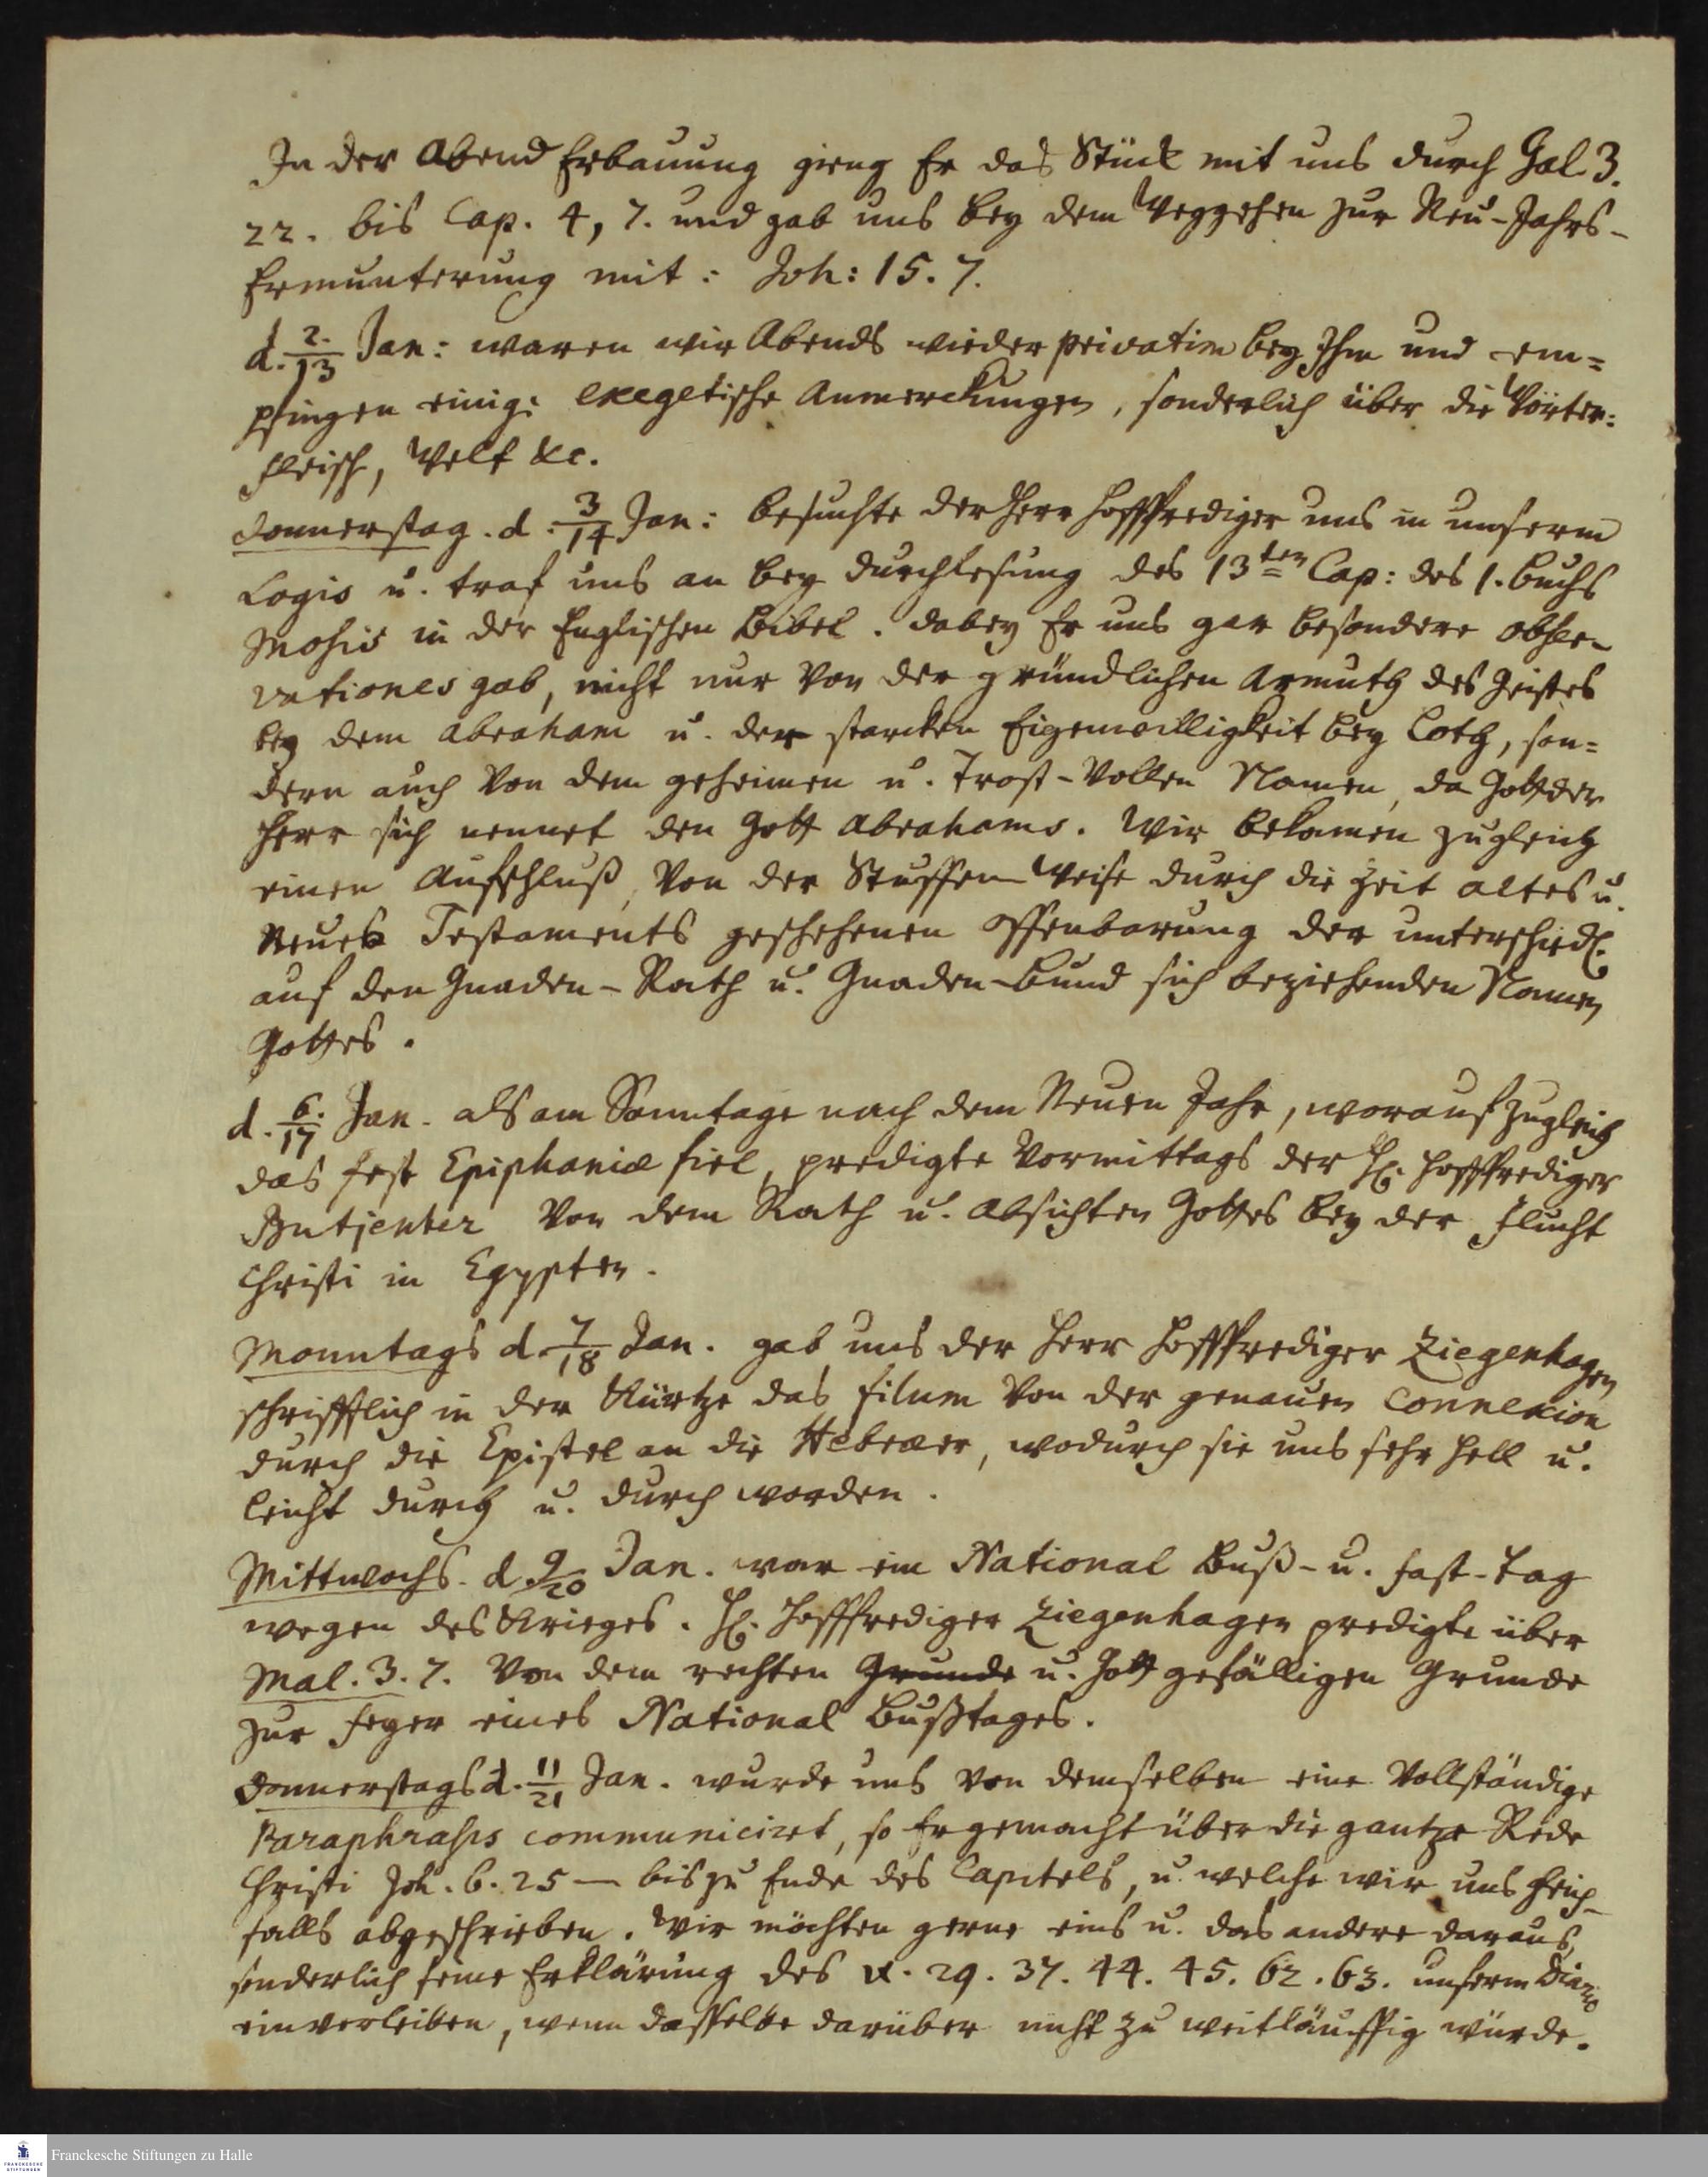 In der Abend Erbauung gieng Er das Stück mit uns durch Gal. 3.
22. bis Cap. 4, 7. und gab uns bey dem Weggehen zur Neu-Jahrs-
Ermunterung mit: Joh: 15. 7.
d. 2./13 Jan: waren wir Abends wieder privatim bey Ihm und em=
pfingen einige exegetische Anmerckungen, sonderlich über die Wörter:
Fleisch, Welt &c.
Donnerstag. d. 3/14 Jan: besuchte der Herr Hoffprediger uns in unserm
Logis u. traf uns an bey Durchlesung des 13ten Cap: des 1. Buchs
Mosis in der Englischen Bibel. dabey Er uns gar besondere obser-
vationes gab, nicht nur von der gründlichen Armuth des Geistes
bey dem Abraham u. der starcken Eigenwilligkeit bey Loth, son=
dern auch von dem geheimen u. Trost-vollen Namen, da Gott der
Herr sich nennet den Gott Abrahams. Wir bekamen zugleich
einen Aufschluß, von der Stuffen-Weise durch die Zeit altes u.
Neues Testaments geschehenen Offenbarung der unterschiedl.
auf den Gnaden-Rath u. Gnaden-Bund sich beziehenden Namen
Gottes.
d. 6./17 Jan. als am Sonntage nach dem Neuen Jahr, worauf zugleich
das Fest Epiphaniæ fiel, predigte Vormittags der H. Hoffprediger
Butjenter von dem Rath u. Absichten Gottes bey der Flucht
Christi in Egypten.
Monntags d. 7/18 Jan. gab uns der Herr Hoffprediger Ziegenhagen
schrifftlich in der Kürtze das filum von der genauen Connexion
durch die Epistel an die Hebræer, wodurch sie uns sehr hell u.
leicht durch u. durch worden.
Mittwochs. d. 9/20 Jan. war ein National Buß- u. Fast-Tag
wegen des Krieges. H. Hoffprediger Ziegenhagen predigte über
Mal. 3. 7. Von dem rechten Grunde u. Gott gefälligen Grunde
zur Feyer eines National Bußtages.
Donnerstags d. 11/21 Jan. wurde uns von demselben eine vollständige
Paraphrasis communiciret, so Er gemacht über die gantze Rede
Christi Joh. 6. 25 — bis zu Ende des Capitels, u. welche wir uns
falls abgeschrieben. Wir möchten gerne eins u. das andere daraus,
sonderlich seine Erklärung des v. 29. 37. 44. 45. 62. 63. unserm Diario
einverleiben, wenn dasselbe darüber nicht zu weitläuffig würde.
Franckesche Stiftungen zu Halle
FRANCKESCHE
STIFTUNGEN